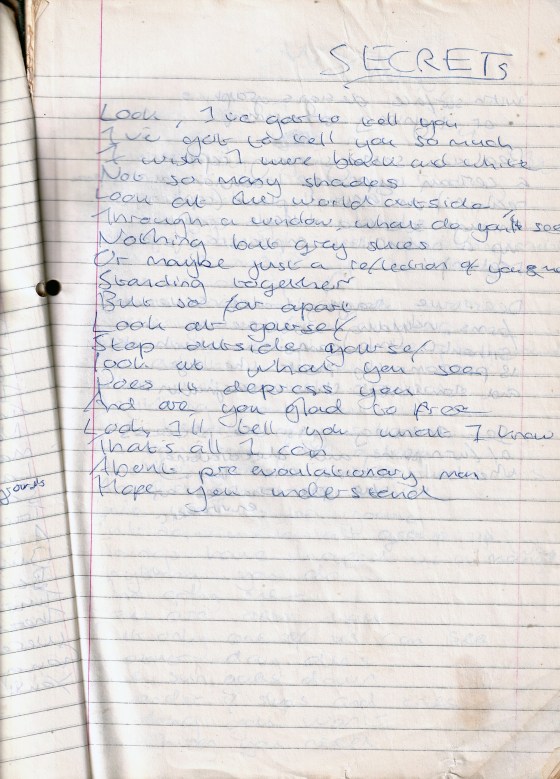 SECRETS
Look, I've got to tell you
I've got to tell you so much
I wish I were black and white
Not so many shades
Look at the world outside
Through a window, what do you see
Nothing but grey skies
Or maybe just a reflection of you &
Standing together
But so far apart
Look at yourself
Step outside yourself
Look at what you seen
Does it depress you
And are you glad to free
Look, I'll tell you what I know
That's all I can
About pre evoulationary man
Hope you understand
grounds